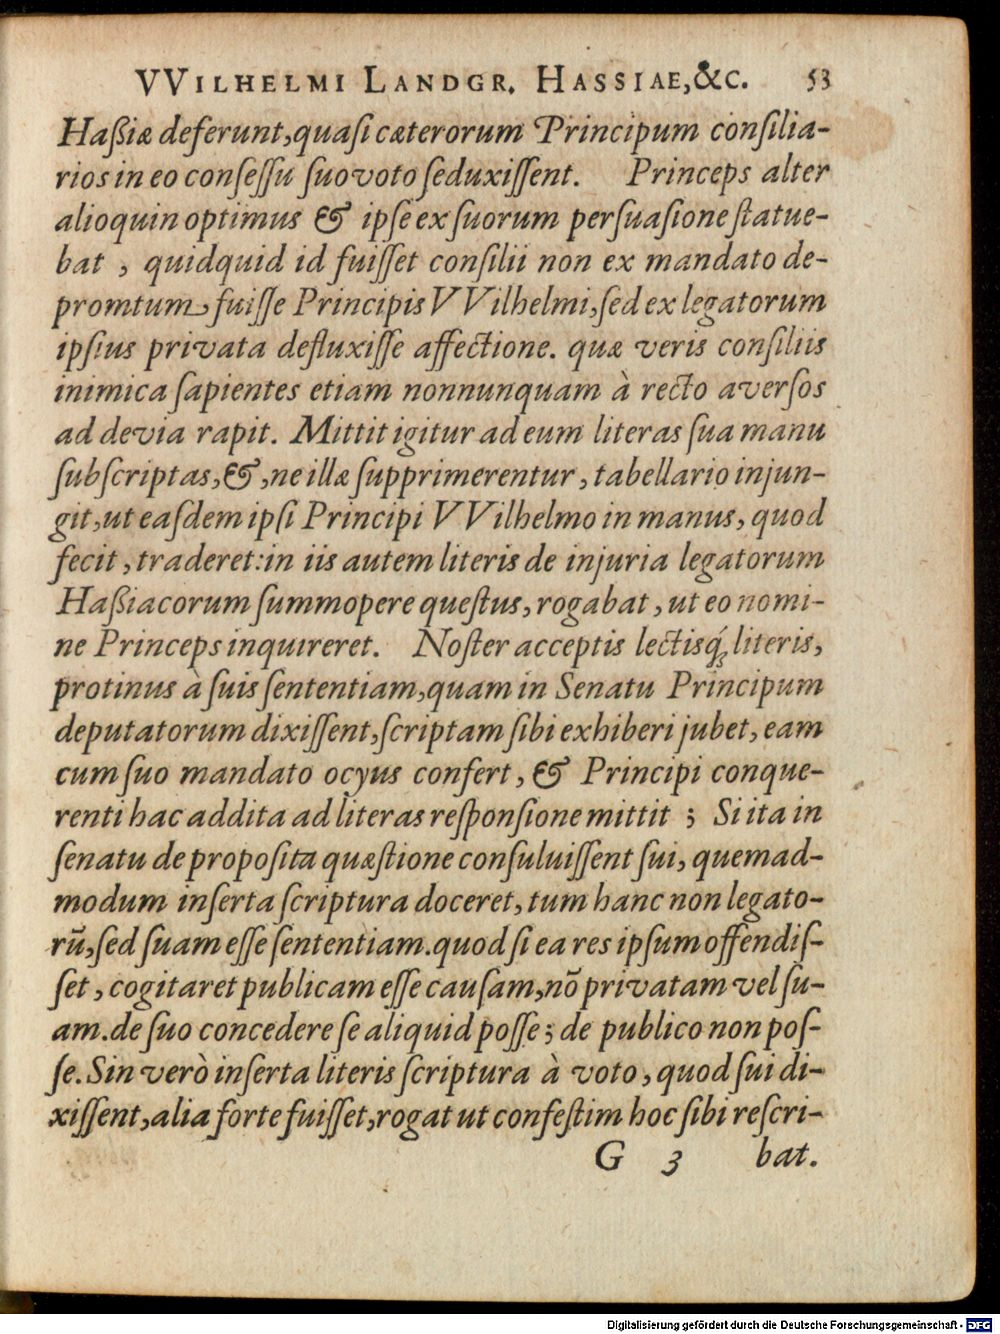 VVILHELMI LANDGR. HASSIAE,&C. 53
Haßiæ deferunt,quaſi cæterorum Principum conſilia-
rios in eo conſeſſu ſuo voto ſeduxiſſent. Princeps alter
alioquin optimus & ipſe ex ſuorum perſuaſione ſtatue-
bat , quidquid id fuiſſet conſilii non ex mandato de-
promtum fuiſſe Principis VVilhelmi,ſed ex legatorum
ipſius privata defluxiſſe affectione. quæ veris conſiliis
inimica ſapientes etiam nonnunquam à recto averſos
ad devia rapit. Mittit igitur ad eum literas ſua manu
ſubſcriptas,& ,ne illæ ſupprimerentur , tabellario injun-
git,ut eaſdem ipſi Principi VVilhelmo in manus, quod
fecit , traderet:in iis autem literis de injuria legatorum
Haßiacorum ſummopere queſtus, rogabat , ut eo nomi-
ne Princeps inquireret. Noſter acceptis lectisq́; literis,
protinus à ſuis ſententiam,quam in Senatu Principum
deputatorum dixiſſent,ſcriptam ſibi exhiberi jubet, eam
cum ſuo mandato ocyus confert , & Principi conque-
renti hac addita ad literas reſponſione mittit ; Si ita in
ſenatu de propoſita quæſtione conſuluiſſent ſui, quemad-
modum inſerta ſcriptura doceret, tum hanc non legato-
rū,ſed ſuam eſſe ſententiam.quod ſi ea res ipſum offendiſ-
ſet , cogitaret publicam eſſe cauſam,nō privatam vel ſu-
am.de ſuo concedere ſe aliquid poſſe; de publico non poſ-
ſe. Sin verò inſerta literis ſcriptura à voto , quod ſui di-
xiſſent,alia forte fuiſſet,rogat ut confeſtim hoc ſibi reſcri-
G 3 bat.
Digitalisierung gefördert durch die Deutsche Forschungsgemeinschaft - DFG